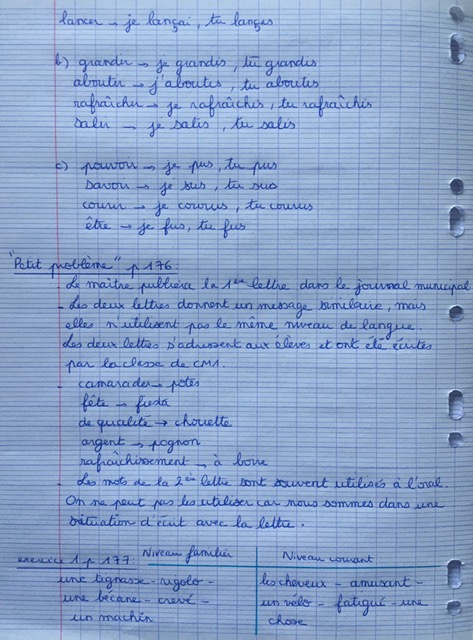 lancer → je lançai, tu lanças
b) grandir → je grandis, tu grandis
aboutir → j'aboutis, tu aboutis
rafraîchir → je rafraîchis, tu rafraîchis
salir → je salis, tu salis
c) pouvoir → je pus, tu pus
savoir → je sus, tu sus
courir → je courus, tu courus
être → je fus, tu fus
"Petit problème" p 176:
- Le maître publiera la 1ère lettre dans le journal municipal.
- Les deux lettres donnent un message similaire, mais
elles n'utilisent pas le même niveau de langue.
Les deux lettres s'adressent aux élèves et ont été écrites
par la classe de CM1.
- camarades → potes
fête → fiesta
de qualité → chouette
argent → pognon
rafraîchissement → à boire
- Les mots de la 2ère lettre sont souvent utilisés à l'oral.
On ne peut pas les utiliser car nous sommes dans une
situation d'écrit avec la lettre.
exercice 1 p 177: Niveau familier Niveau courant
une tignasse - rigolo - les cheveux - amusant -
une bécane - crevé - un vélo - fatigué - une
un machin chose